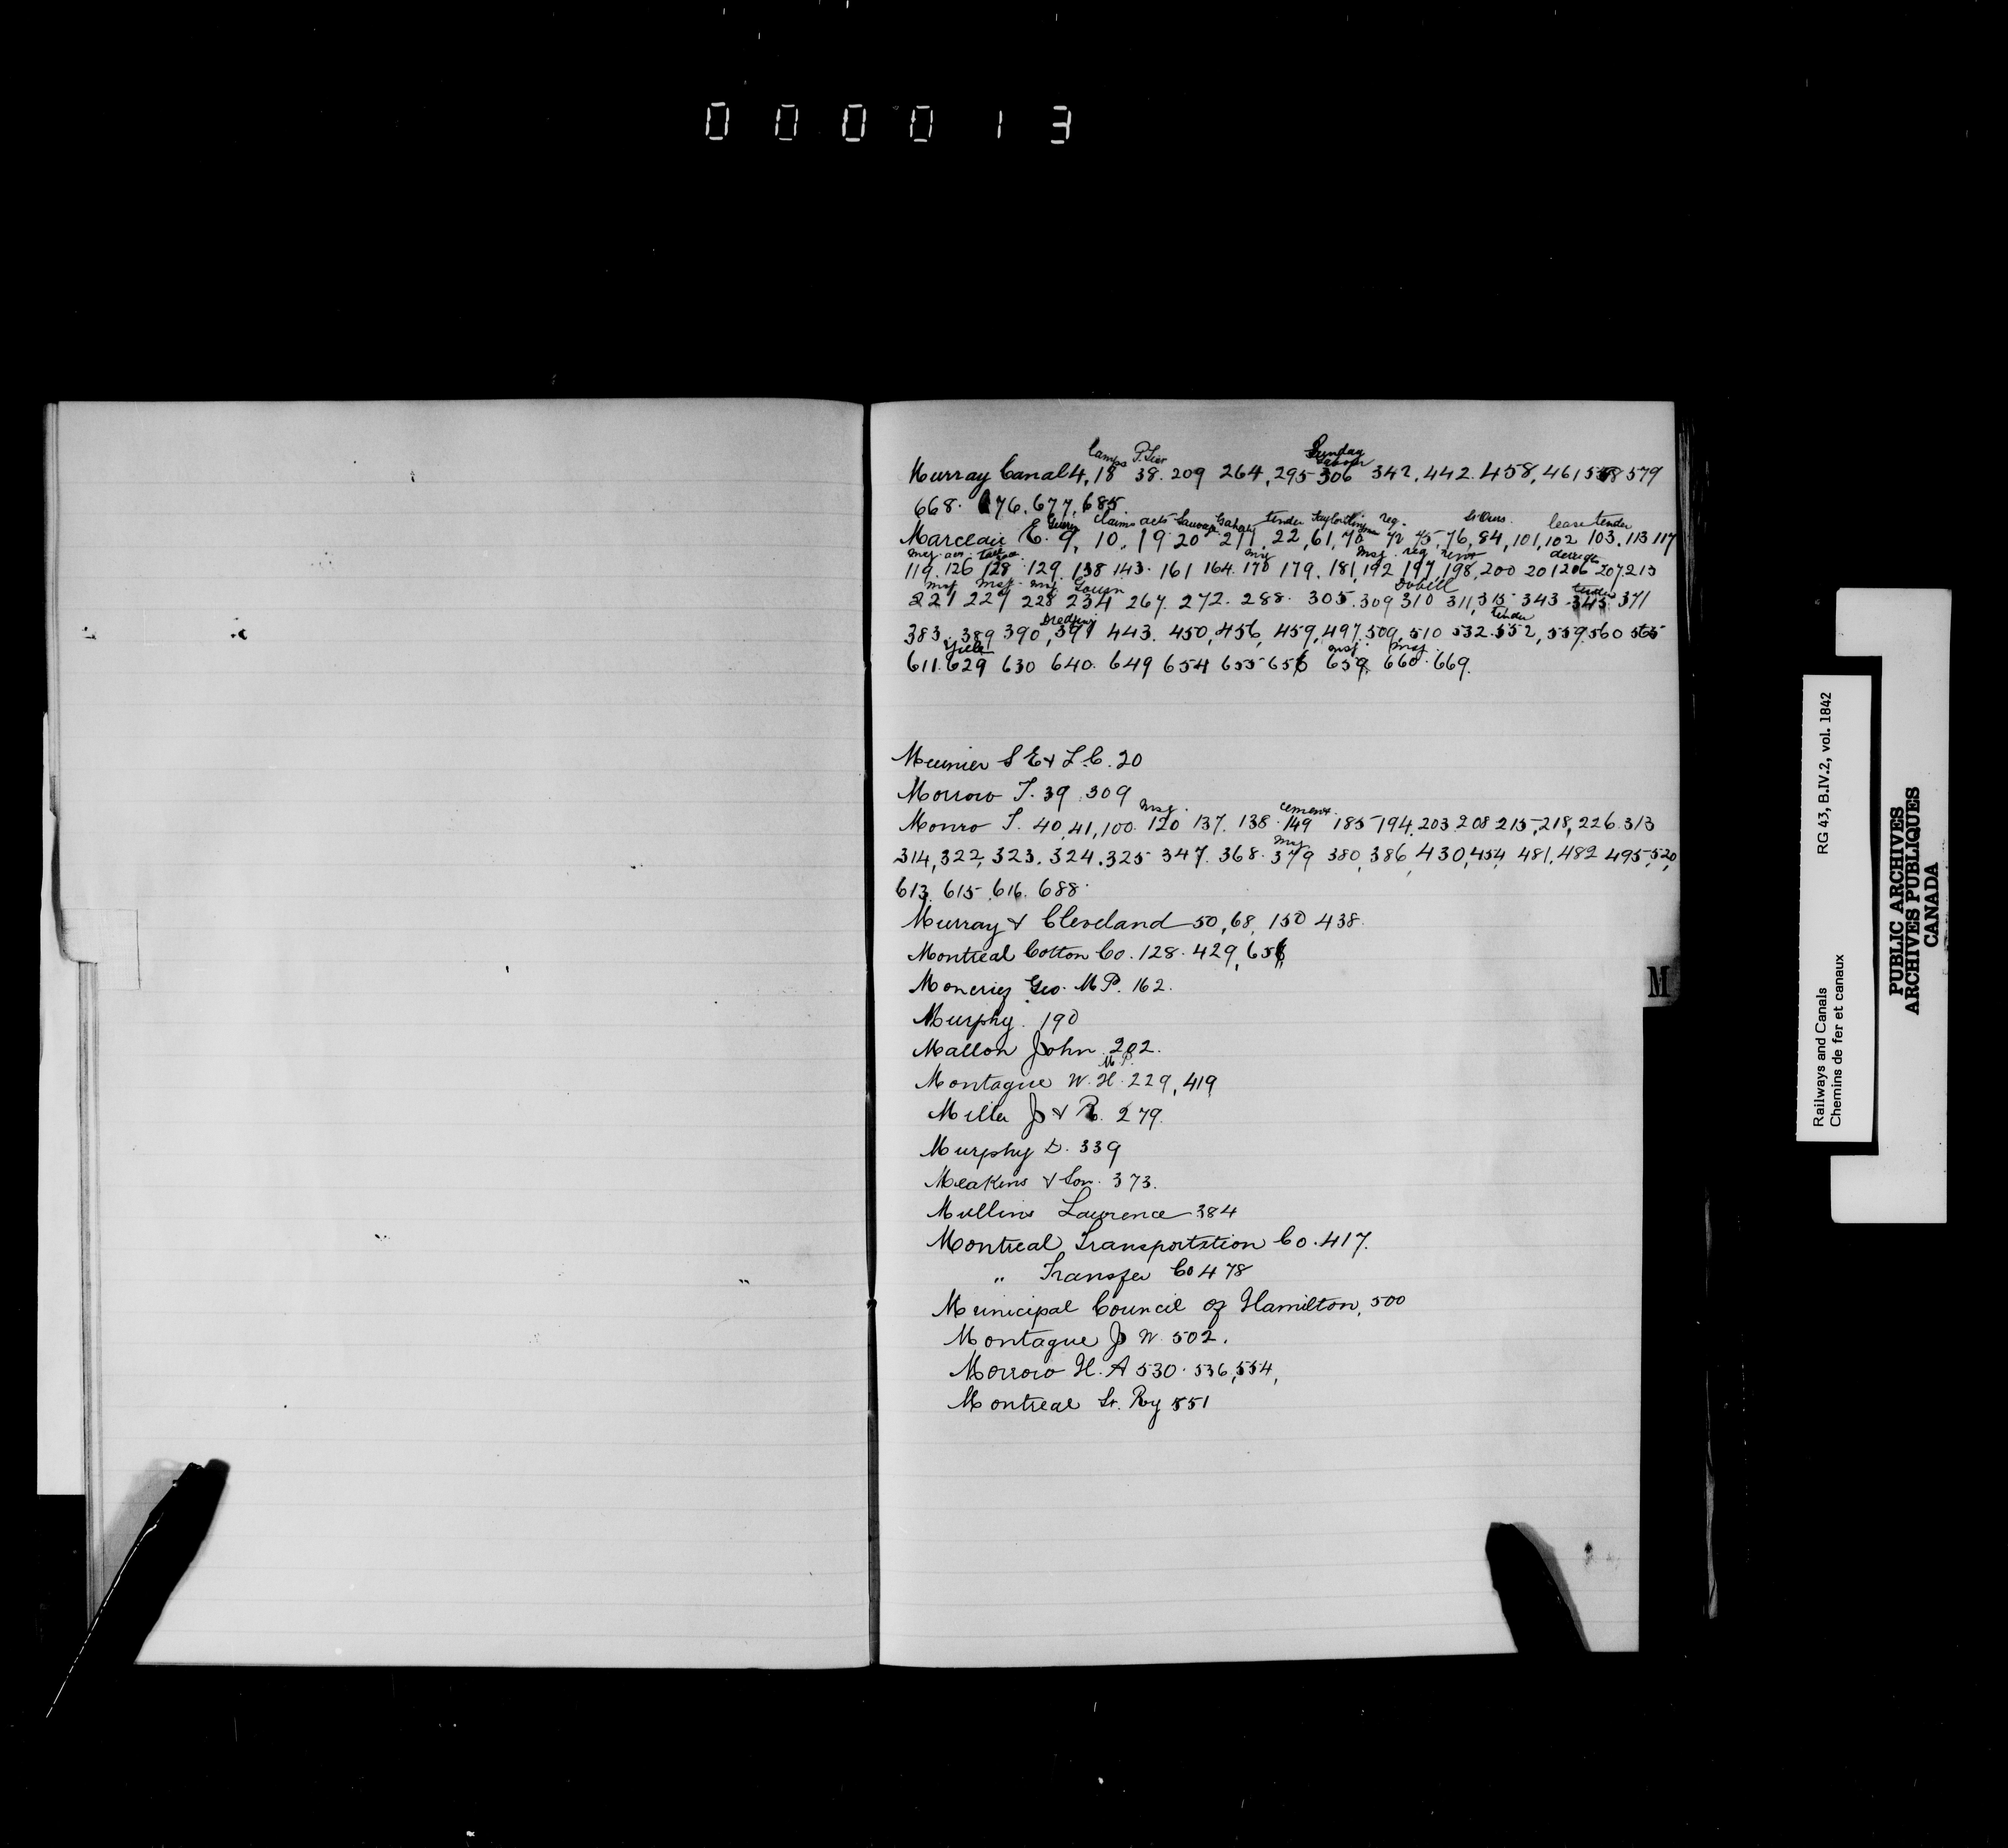 000013
Lamps P. Lier Sunday Labor
Murray Canal 4, 18 38. 209 264, 295 306 342, 442. 458, 461 579
668. 676, 677, 685.
claims acts Sauvage tender reg. St Ours. lease tender
Marceau E. 9, 10, 19 20 211, 22, 61, 70 72 75, 76, 84, 101, 102 103. 113 117
msg msg reg derrick
119. 126 128 129. 138 143. 161 164. 170 179. 181, 192 197, 198, 200 201 206 207. 213
msg msg msg Gouin Dobell tender
221 227 228 234 267. 272. 288. 305. 309 310 311, 315 343 345 371
Dredging tender
383. 389 390, 391 443. 450, 456, 459, 497. 509, 510 532. 552, 559. 560 565
msg msg
611. 629 630 640. 649 654 655 656 659. 660. 669.
Meunier S E & L. C. 20
Morrow J. 39. 309
msg. cement
Monro T. 40, 41, 100. 120 137. 138. 149 185 194. 203 208 215, 218, 226. 313
msg
314, 322, 323. 324. 325 347. 368. 379 380, 386, 430, 454 481. 482 495, 520,
613. 615. 616. 688.
Murray & Cleveland 50, 68, 150 438.
Montreal Cotton Co. 128. 429, 656
Moncrieff Geo. M P. 162.
Murphy. 190
Mallon John. 202.
M P.
Montague W. H. 229, 419
Miller J & R. 279.
Murphy D. 339
Meakins & Son. 373.
Mullins Lawrence 384
Montreal Transportation Co. 417.
" Transfer Co 478
Municipal Council of Hamilton, 500
Montague J W. 502.
Morrow H. A 530. 536, 554,
Montreal St. Ry 551
M
Railways and Canals RG 43, B.IV.2, vol. 1842
Chemins de fer et canaux
PUBLIC ARCHIVES
ARCHIVES PUBLIQUES
CANADA